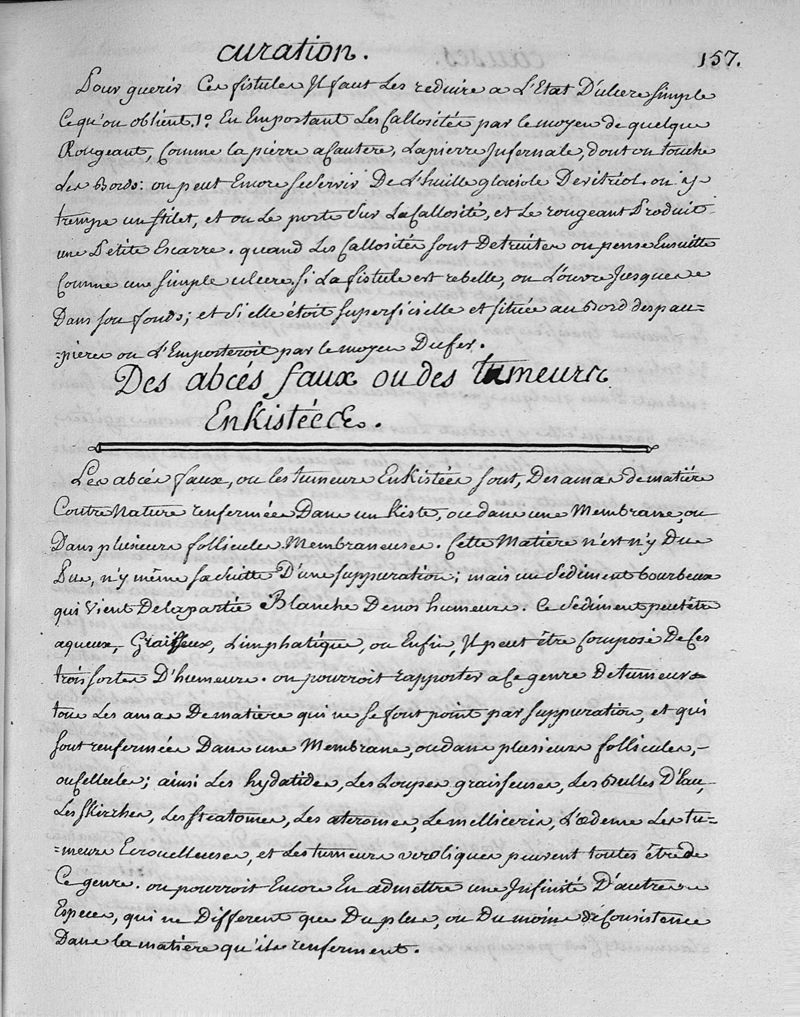 curation.
157.
Pour guerir Ces fistules Il faut Les reduire a L'Etat D'ulcere simple
Ce qu'on obtient. 1.º En Emportant Les Callosités par le moyen de quelque
Rougeant, Comme la pierre a Cautere, La pierre Infernale, dont on touche
Les Bords: on peut Encore se servir De L'huille glaciale De vitriol. on y
trempe un stilet, et on Le porte Sur La Callosité, et Le rougeant Produit
une Petite Escarre. quand Les Callosités sont Detruites on pense Ensuitte
Comme une simple ulcere. si La fistule est rebelle, on L'ouvre Jusques
Dans son fonds; et si elle étoit superficielle et située au Bord des pau=
=pieres on L'Emporteroit par le moyen Du fer.
Des abcés faux ou des tumeurs
Enkistéés.
Les abcés faux, ou les tumeurs EnKistées sont, Des amas de matiére
Contre Nature renfermées Dans un Kiste, ou dans une Membrane, ou
Dans plusieurs follicules Membraneuses. Cette Matiére n'est n'y Du
Pus, n'y même sa suitte D'une suppuration; mais un Sediment bourbeux
qui Vient De la partie Blanche De nos humeurs. Ce Sediment peut être
aqueux, Graisseux, Limphatique, ou Enfin, Il peut être Composé De Ces
trois sortes D'humeurs. on pourroit rapporter a Ce genre De tumeurs
tous Les amas De matiére qui ne se font point par suppuration, et qui
sont renfermées Dans une Membrane, ou dans plusieurs follicules,
ou Cellules; ainsi Les hydatides, Les Loupes graisseuses, Les Bulles D'Eau,
Les skirrhes, Les steatomes, Les ateromes, Le melliceris, L'œdeme Les tu=
=meurs Ecrouelleuses, et Les tumeurs veroliques peuvent toutes être de
Ce genre. on pourroit Encore En admettre une Infinité D'autres
Especes, qui ne Different que Du plus, ou Du moins de Consistence
Dans la matiére qu'ils renferment.